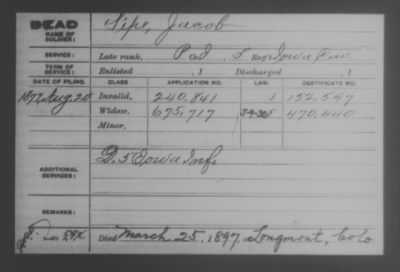 DEAD
NAME OF SOLDIER: Sipe, Jacob
SERVICE: Late rank, P Co. I, 5 Reg't Iowa Cav
TERM OF SERVICE: Enlisted , 1 Discharged , 1
DATE OF FILING. CLASS APPLICATION NO. LAW. CERTIFICATE NO.
1877 Aug. 20 Invalid, 240,841 152,547
Widow, 675,717 470,440
Minor,
ADDITIONAL SERVICES: D. 5 Iowa Inf.
REMARKS:
Died March 25, 1897, Longmont, Colo